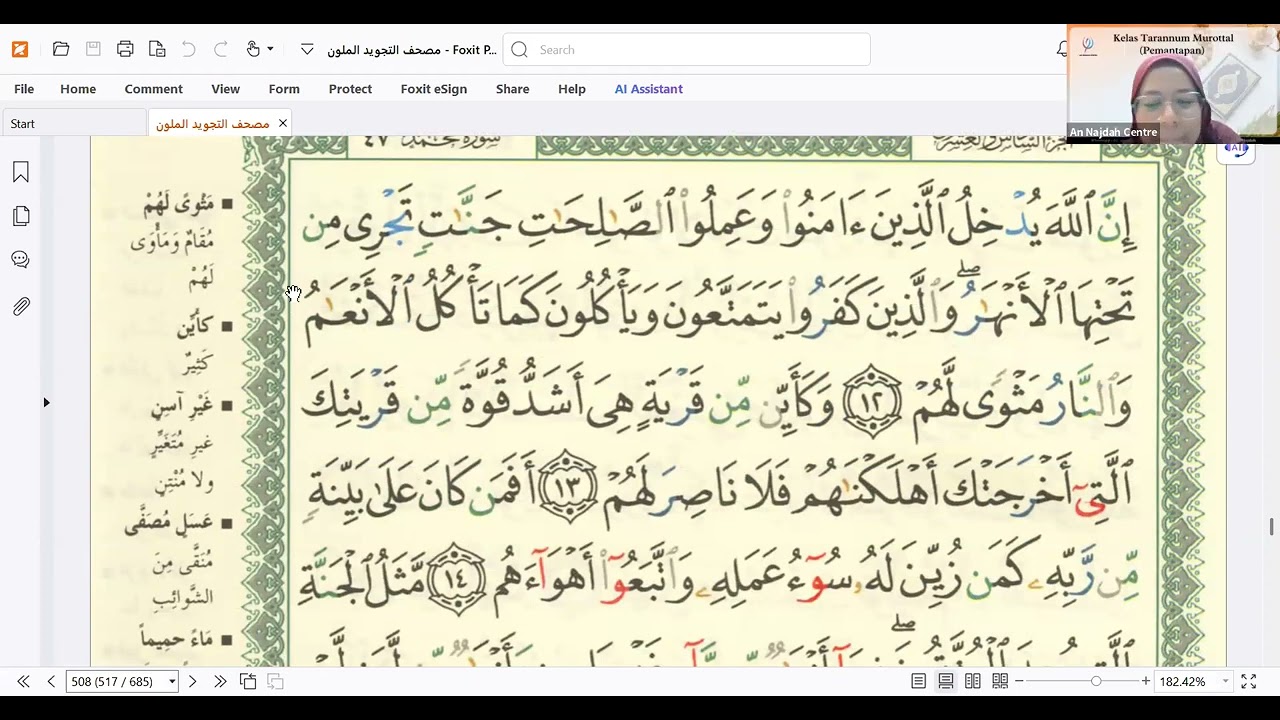 مصحف التجويد الملون - Foxit P...
Search
Kelas Tarannum Murottal
(Pemantapan)
An Najdah Centre
File Home Comment View Form Protect Foxit eSign Share Help AI Assistant
Start
مصحف التجويد الملون
سورة محمد ٤٧
الجزء السادس والعشرون
إِنَّ ٱللَّهَ يُدْخِلُ ٱلَّذِينَ ءَامَنُوا۟ وَعَمِلُوا۟ ٱلصَّـٰلِحَـٰتِ جَنَّـٰتٍ تَجْرِى مِن
تَحْتِهَا ٱلْأَنْهَـٰرُ ۖ وَٱلَّذِينَ كَفَرُوا۟ يَتَمَتَّعُونَ وَيَأْكُلُونَ كَمَا تَأْكُلُ ٱلْأَنْعَـٰمُ
وَٱلنَّارُ مَثْوًى لَّهُمْ ١٢ وَكَأَيِّن مِّن قَرْيَةٍ هِىَ أَشَدُّ قُوَّةً مِّن قَرْيَتِكَ
ٱلَّتِىٓ أَخْرَجَتْكَ أَهْلَكْنَـٰهُمْ فَلَا نَاصِرَ لَهُمْ ١٣ أَفَمَن كَانَ عَلَىٰ بَيِّنَةٍ
مِّن رَّبِّهِۦ كَمَن زُيِّنَ لَهُۥ سُوٓءُ عَمَلِهِۦ وَٱتَّبَعُوٓا۟ أَهْوَآءَهُم ١٤ مَّثَلُ ٱلْجَنَّةِ
مَثْوًى لَهُمْ
مُقَامٌ وَمَأْوَى
لَهُمْ
كأيِّن
كَثِيرٌ
غَيْرِ آسِنٍ
غيرِ مُتَغَيِّرٍ
ولا مُنْتِنٍ
عَسَلٍ مُصَفَّى
مُنَقَّى مِنَ
الشَّوائِبِ
مَاءً حمِيماً
508 (517 / 685)
182.42%